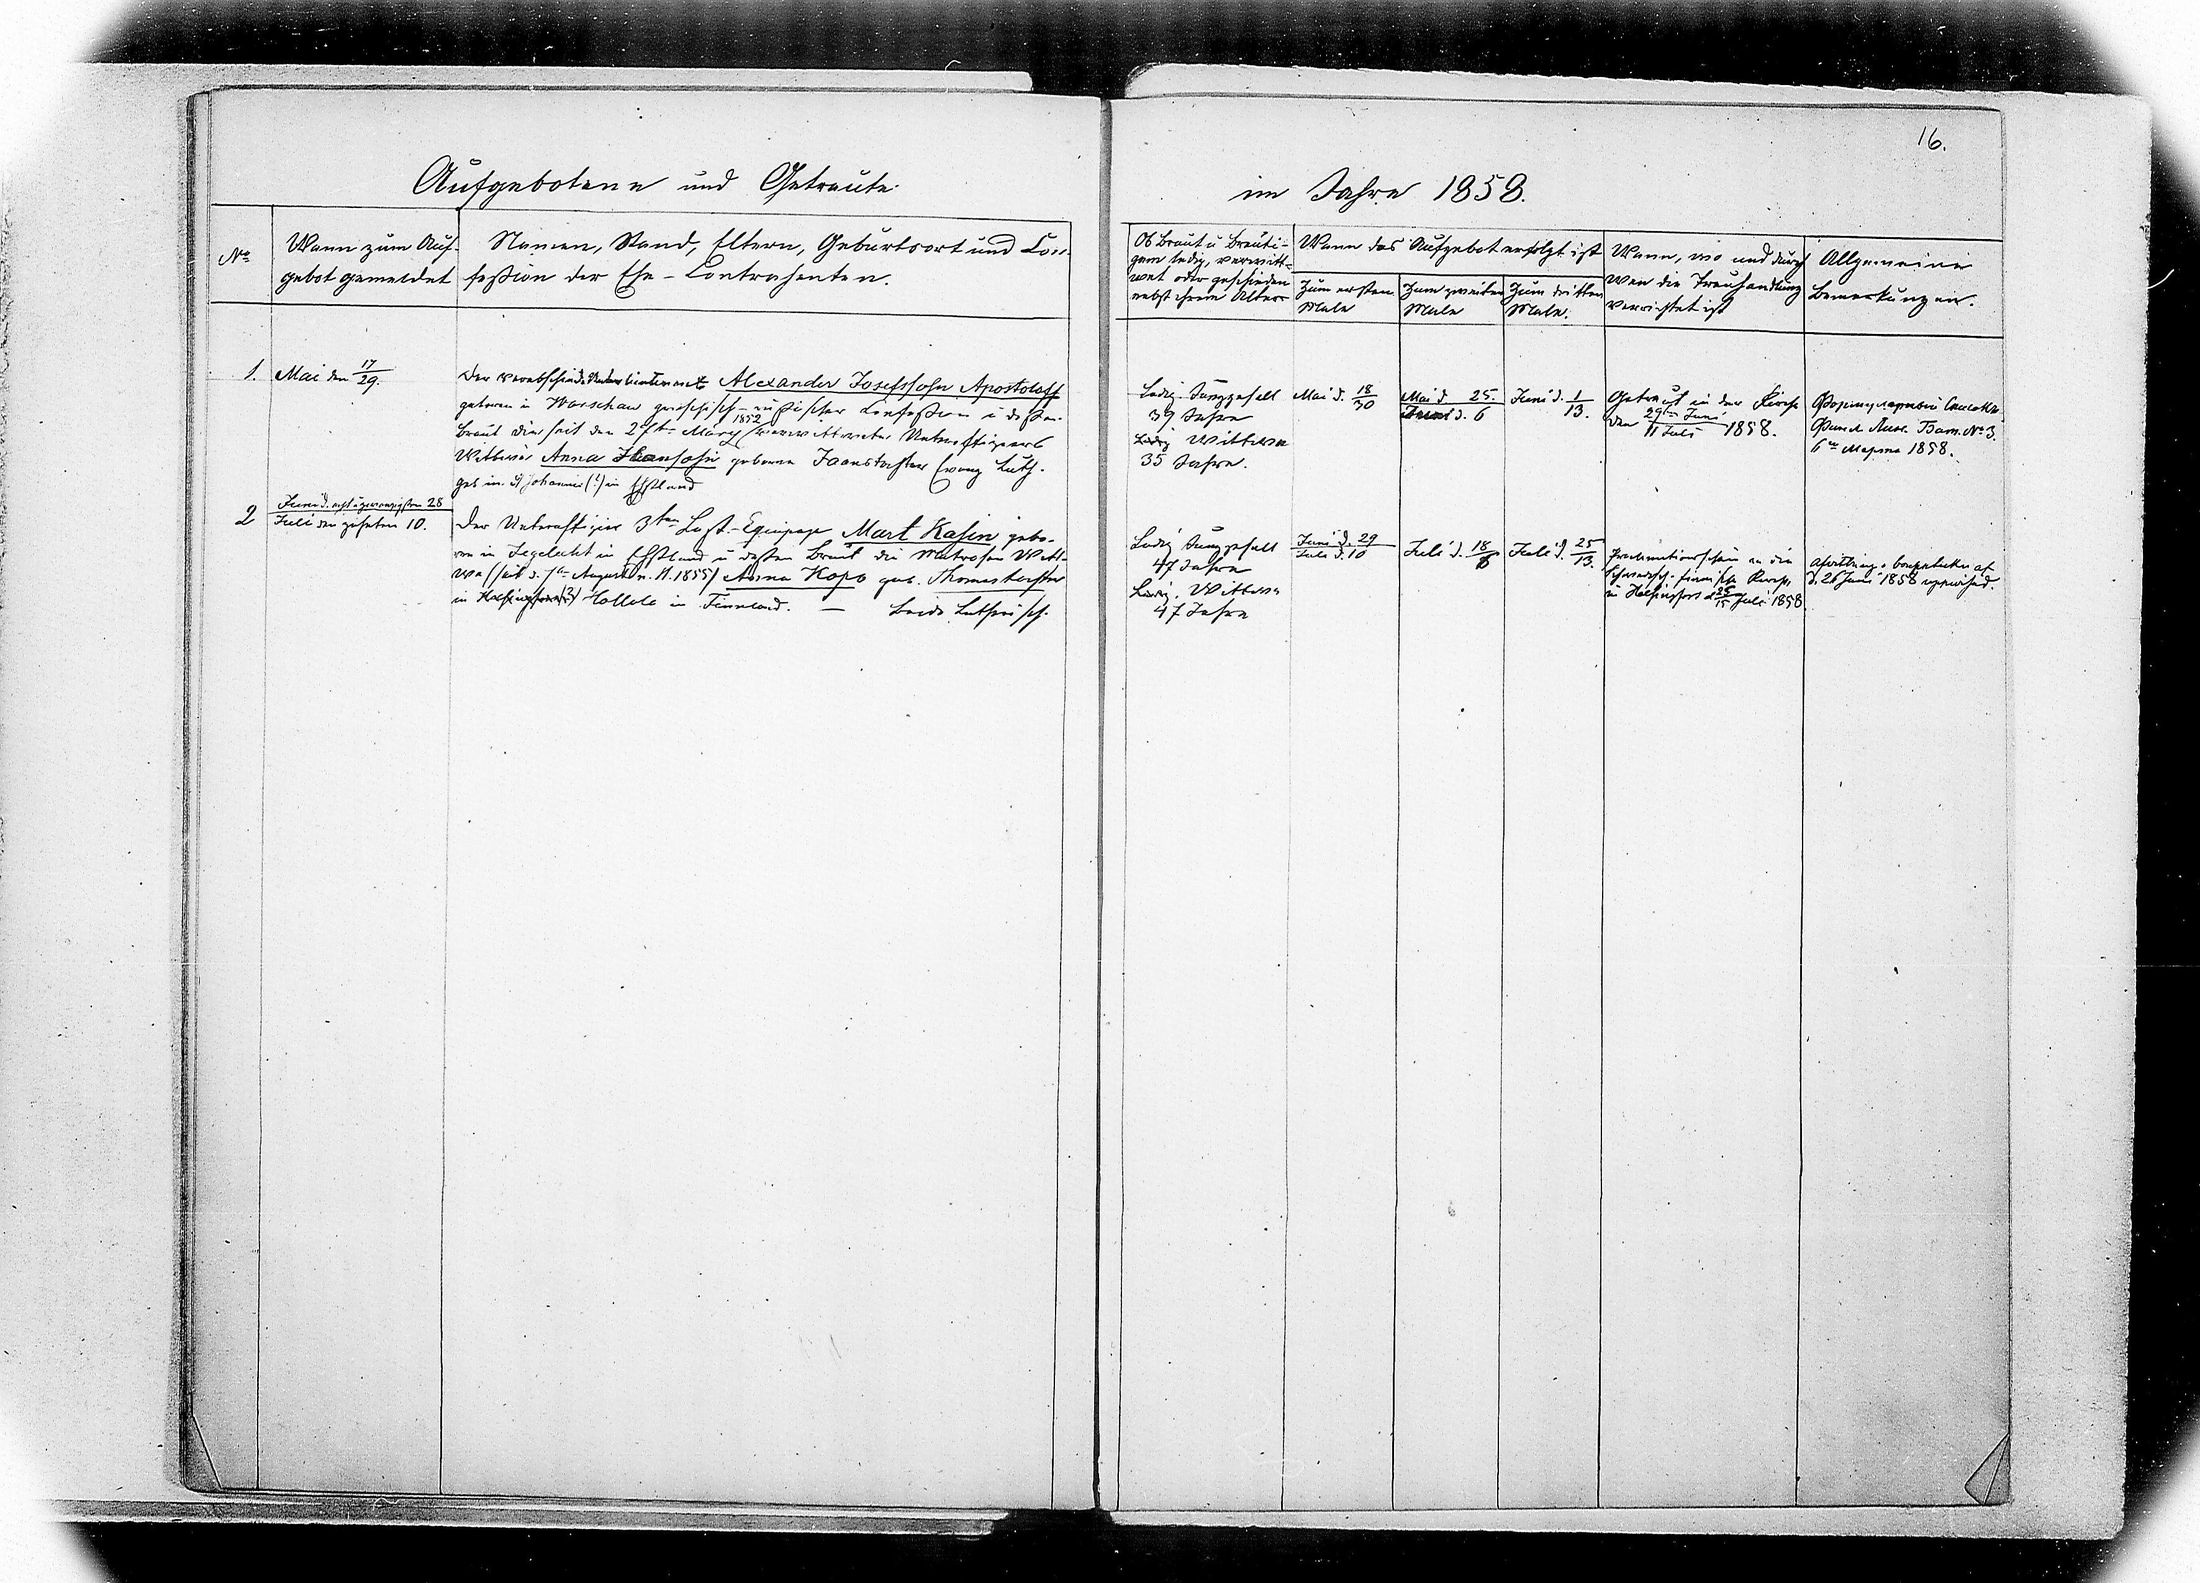 16.
Aufgebotene und Getraute
im Jahre 1858.
No
Wann zum Auf-
gebot gemeldet
Namen, Stand, Eltern, Geburtsort und Con-
fession der Ehe-Contrahenten.
Ob Braut u Bräuti-
gam ledig, verwitt-
wet oder geschieden
nebst ihrem Alter
Wann das Aufgebot erfolgt ist
Zum ersten
Male
Zum zweiten
Male
Zum dritten
Male.
Wann, wo und durch
wen die Trauhandlung
verrichtet ist
Allgemeine
Bemerkungen.
1.
Mai den 17/29.
Der verabschiedete Unterlieutenant Alexander Josefssohn Apostoloff
geboren in Warschau griechisch-russischer Confession u dessen
Braut die seit den 2ten März 1852 verwittwete Unteroffiziers
Wittwe Anna geborene Jaanstochter Evang Luth.
geb in St Johannis (?) in Ehstland
Ledig Junggesell
39 Jahre
Ledig Wittwe
35 Jahre.
Mai d. 18/30
Mai d. 25.
Juni d. 6
Juni d. 1/13.
Getraut in der Kirche
den 29ten Juni/11 Juli 1858.
Формулярный Списокъ
Финл. Лин. Бат. № 3.
6го Марта 1858.
2
Juni d. acht u zwanzigsten 28
Juli den zehnten 10.
Der Unteroffizier 3ten Last-Equipage Mart Kasin gebo-
ren in Jegelecht in Ehstland u dessen Braut die Matrosen Witt-
we (seit d. August n. St. 1855) Anna Kopo geb. Thomastochter
in Hollola in Finnland. — Beide Lutherisch.
Ledig Junggesell
47 Jahre
Ledig. Wittwe
47 Jahre
Juni d. 29
Juli d. 10
Juli d. 18/6
Juli d. 25/13.
Proclamationsschein an die
Schwedisch-finnische Kirche
in Helsingfors d 25/15 Juli 1858
d. 26 Juni 1858 uppvisad.